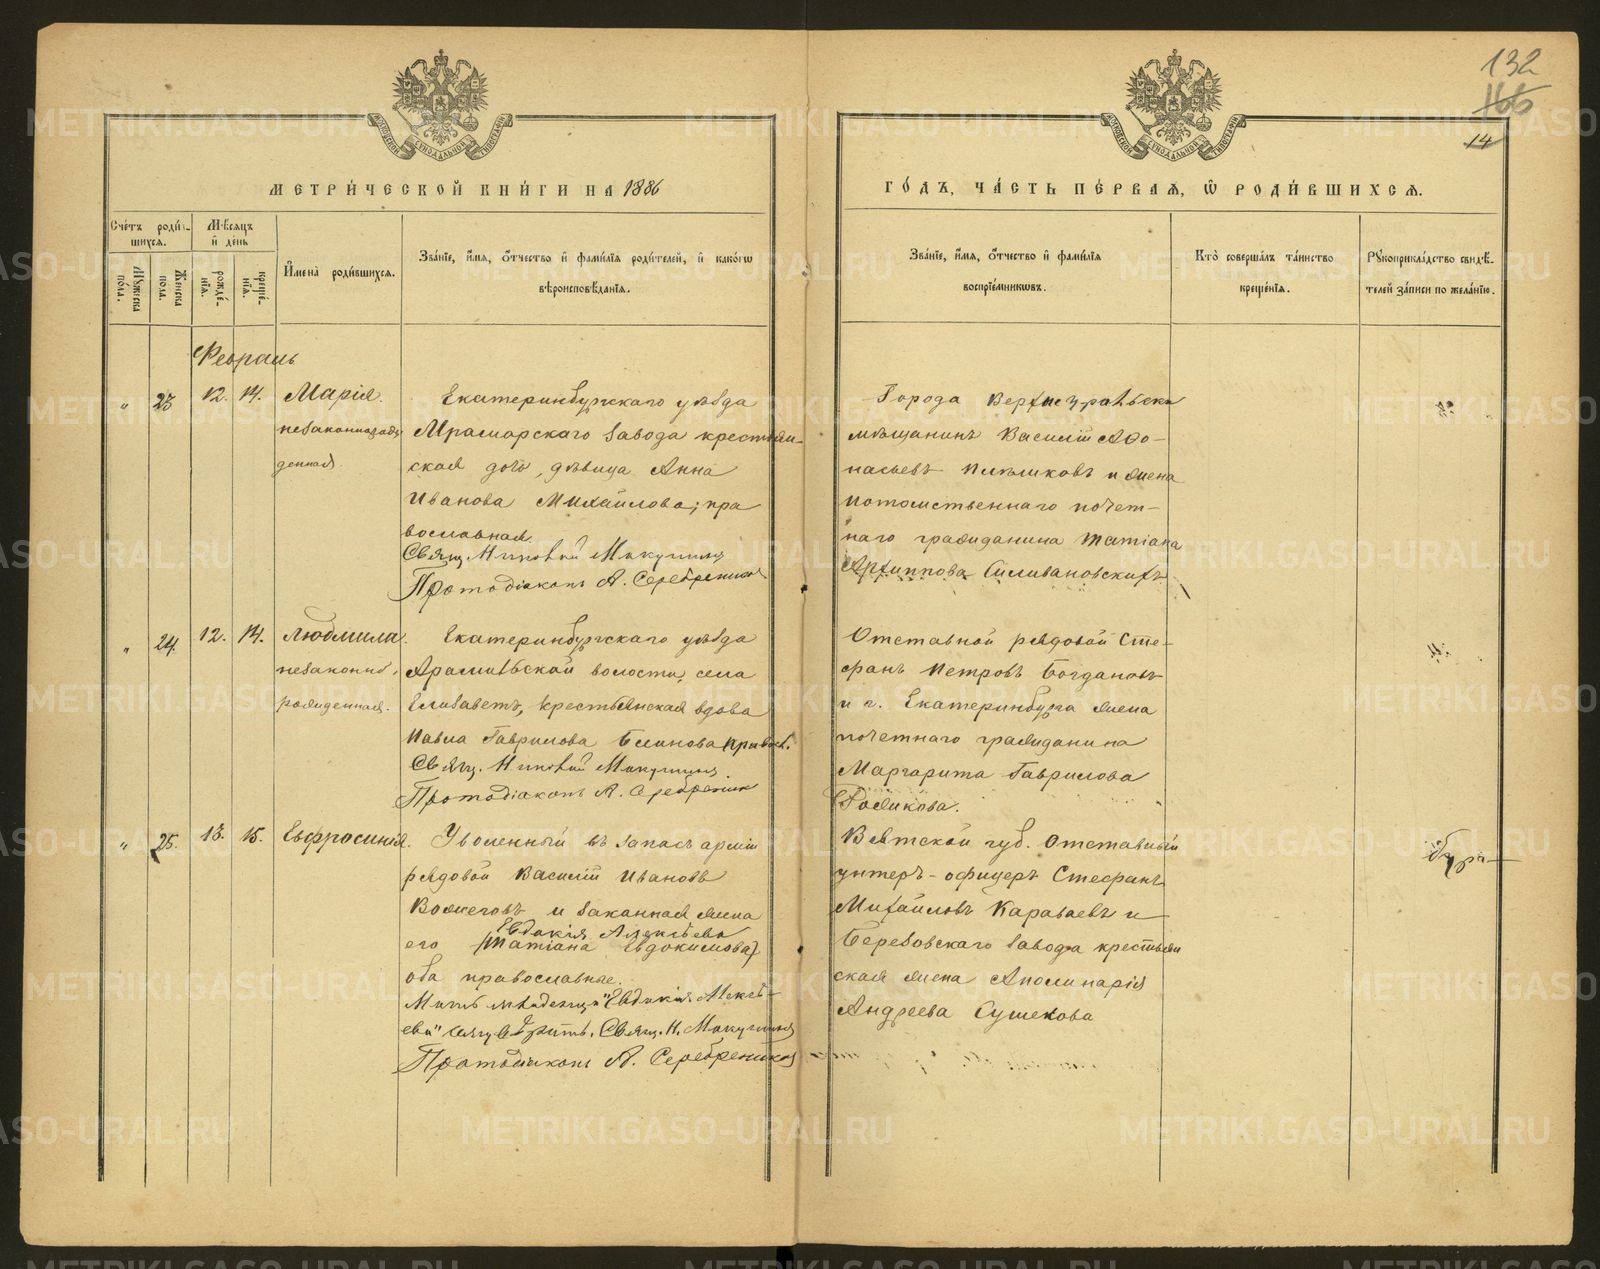 132
166
14
МОСКОВСКОЙ СѴНОДАЛЬНОЙ ТИПОГРАФІИ
МОСКОВСКОЙ СѴНОДАЛЬНОЙ ТИПОГРАФІИ
МЕТРИ́ЧЕСКОЙ КНИ́ГИ НА 1886
ГО́ДЪ, ЧА́СТЬ ПЕ́РВАЯ, Ѡ РОДИ́ВШИХСѦ.
Сче́тъ роди́в-
шихсѧ.
Мѣ́сяцъ
и де́нь
Мꙋ́жеска
пола.
Же́нска
пола.
рожде́-
нїѧ.
креще́-
нїѧ.
И҆мена̀ роди́вшихсѧ.
Зва́нїе, и҆́мѧ, ѻ҆́тчество и҆ фами́лїѧ роди́телей, и҆ како́гѡ
вѣроисповѣ́данїѧ.
Зва́нїе, и҆́мѧ, ѻ҆́тчество и҆ фами́лїѧ
воспрїе́мникѡвъ.
Кто̀ соверша́лъ та́инство
креще́нїѧ.
Рꙋкоприкла́дство свидѣ́-
телей за́писи по жела́нїю.
Февраль
" 23 12. 14. Марія
незаконнорож
денная
Екатеринбургскаго уѣзда
Мраморскаго завода крестьян-
ская дочь, дѣвица Анна
Иванова Михайлова; пра
вославная.
Свящ. Николай Макушинъ
Протодіаконъ А. Серебрениковъ
Города Верхнеуральска
мѣщанинъ Василій Афо-
насьевъ и жена
потомственнаго почет-
наго гражданина Татіана
Архиппова Силивановскихъ
" 24. 12. 14. Людмила.
незаконно-
рожденная.
Екатеринбургскаго уѣзда
Арамильской волости, села
Елизаветъ, крестьянская вдова
Павла Гаврилова Блинова правосл.
Свящ. Николай Макушинъ.
Протодіаконъ А. Серебреник
Отставной рядовой Сте-
фанъ Петровъ Богдановъ
и г. Екатеринбурга жена
почетнаго гражданина
Маргарита Гаврилова
Голикова.
" 25. 13. 15. Евфросинія.
Уволенный въ запасъ арміи
рядовой Василій Ивановъ
Волжеговъ и законная жена
Евдокія Алексѣева
его (Татіана Евдокимова)
оба православные.
Мать младенца "Евдокія Алексѣ-
ева" Свящ. Н. Макушинъ
Протодіаконъ А. Серебрениковъ
Вятской губ. отставный
унтеръ-офицеръ Стефанъ
Михайловъ Караваевъ и
Березовскаго завода крестьян
ская жена Аполинарія
Андреева Сушекова
METRIKI.GASO-URAL.RU